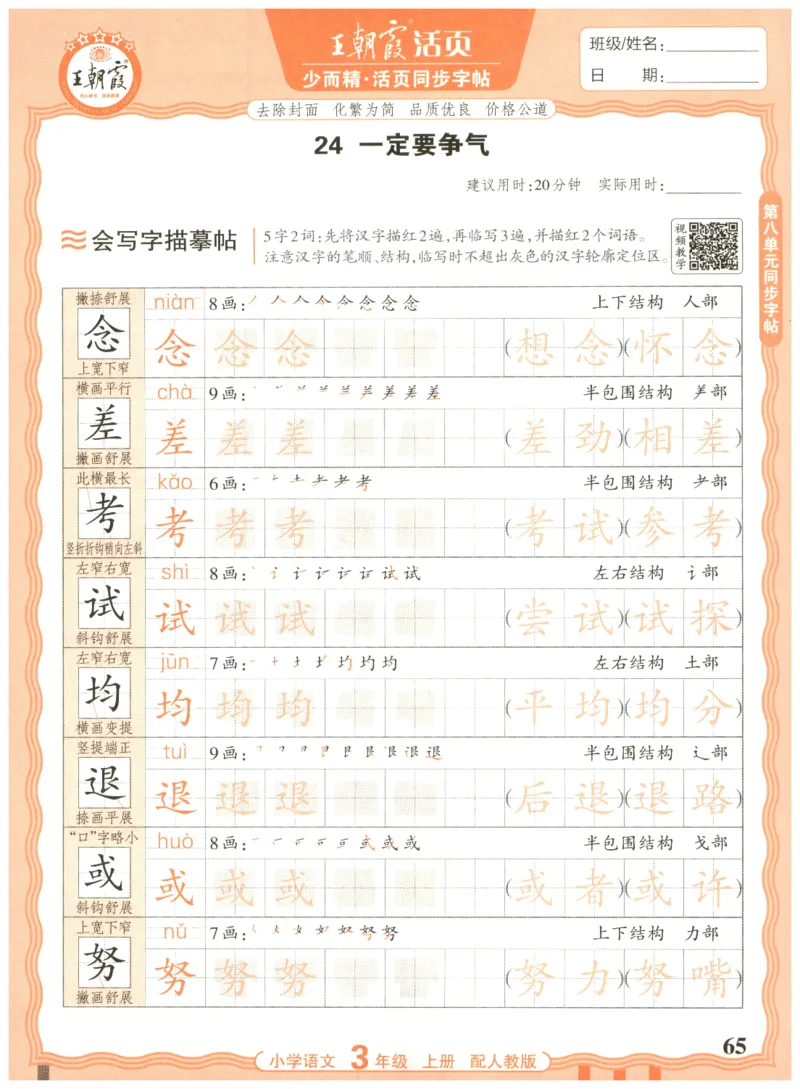 王朝霞
王朝霞活页
少而精·活页同步字帖
班级/姓名:
日 期:
去除封面 化繁为简 品质优良 价格公道
24 一定要争气
建议用时:20分钟 实际用时:
会写字描摹帖
5字2词:先将汉字描红2遍,再临写3遍,并描红2个词语。
注意汉字的笔顺、结构,临写时不超出灰色的汉字轮廓定位区。
视频教学
第八单元同步字帖
撇捺舒展 niàn 8画: 上下结构 人部
念 念 念 念 (想念)(怀念)
上宽下窄
横画平行 chà 9画: 半包围结构 ⺶部
差 差 差 差 (差劲)(相差)
撇画舒展
此横最长 kǎo 6画: 半包围结构 耂部
考 考 考 考 (考试)(参考)
竖折折钩稍向左斜
左窄右宽 shì 8画: 左右结构 讠部
试 试 试 试 (尝试)(试探)
斜钩舒展
左窄右宽 jūn 7画: 左右结构 土部
均 均 均 均 (平均)(均分)
横画变提
竖提端正 tuì 9画: 半包围结构 辶部
退 退 退 退 (后退)(退路)
捺画平展
“口”字略小 huò 8画: 半包围结构 戈部
或 或 或 或 (或者)(或许)
斜钩舒展
上宽下窄 nǔ 7画: 上下结构 力部
努 努 努 努 (努力)(努嘴)
撇画舒展
小学语文 3年级 上册 配人教版
65